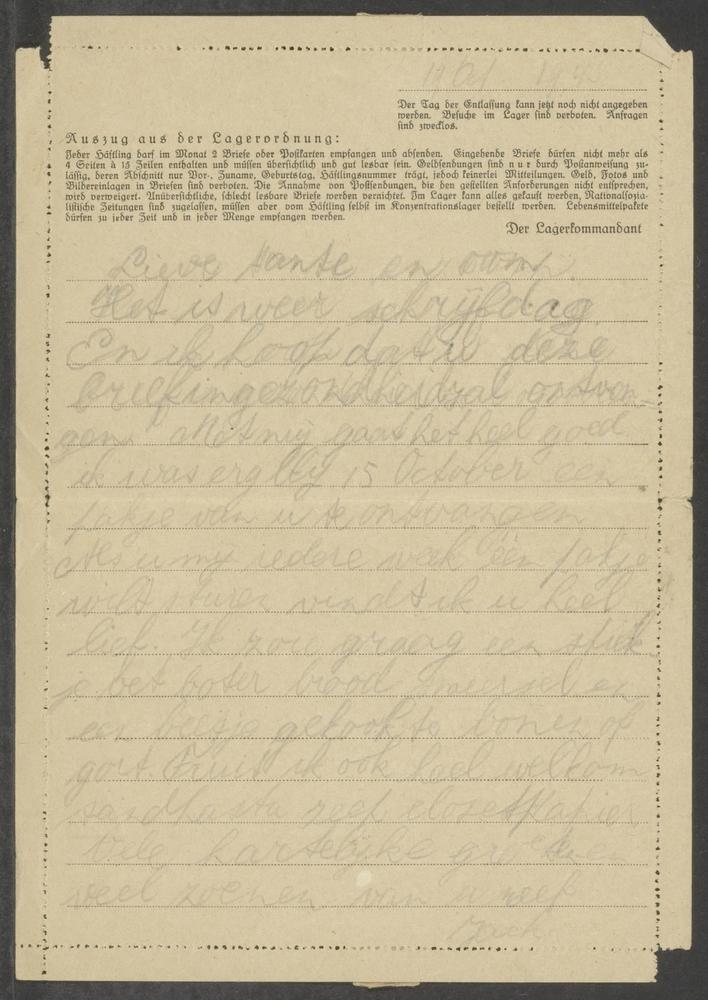 19 Oct 194
Der Tag der Entlassung kann jetzt noch nicht angegeben
werden. Besuche im Lager sind verboten. Anfragen
sind zwecklos.
Auszug aus der Lagerordnung:
Jeder Häftling darf im Monat 2 Briefe oder Postkarten empfangen und absenden. Eingehende Briefe dürfen nicht mehr als
4 Seiten à 15 Zeilen enthalten und müssen übersichtlich und gut lesbar sein. Geldsendungen sind nur durch Postanweisung zu-
lässig, deren Abschnitt nur Vor-, Zuname, Geburtstag, Häftlingsnummer trägt, jedoch keinerlei Mitteilungen. Geld, Fotos und
Bildereinlagen in Briefen sind verboten. Die Annahme von Postsendungen, die den gestellten Anforderungen nicht entsprechen,
wird verweigert. Unübersichtliche, schlecht lesbare Briefe werden vernichtet. Im Lager kann alles gekauft werden. Nationalsozia-
listische Zeitungen sind zugelassen, müssen aber vom Häftling selbst im Konzentrationslager bestellt werden. Lebensmittelpakete
dürfen zu jeder Zeit und in jeder Menge empfangen werden.
Der Lagerkommandant
Lieve tante en oom
Het is weer schrijfdag
En ik hoop dat u deze
brief in gezondheid zal ontvan-
gen. Met mij gaat het heel goed
ik was erg blij 15 October een
pakje van u te ontvangen
Als u my iedere week een pakje
wilt sturen vindt ik u heel
lief. Ik zou graag een stuk
je vet boter brood smeersel en
een beetje gekookte bonen of
gort. Fruit ik ook heel welkom
tandpasta zeep closetpapier
Vele hartelijke groeten en
veel zoenen van u neef